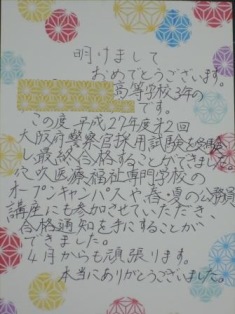 明けまして
おめでとうございます。
高等学校3年の
です。
この度平成27年度第2回
大阪府警察官採用試験を受験
し最終合格することができました。
穴吹医療福祉専門学校の
オープンキャンパスや春、夏の公務員
講座にも参加させていただき、
合格通知を手にすることが
できました。
4月からも頑張ります。
本当にありがとうございました。